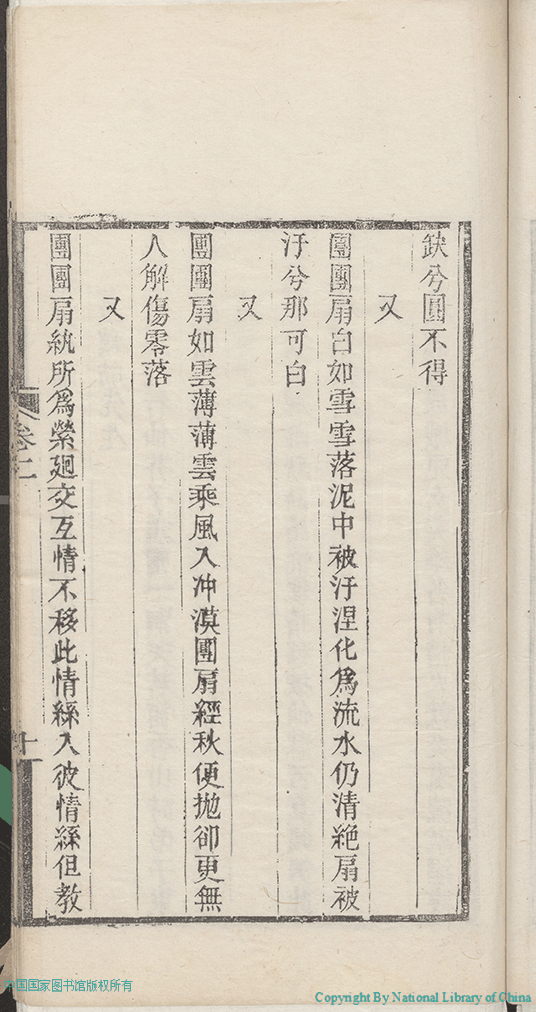 缺兮圓不得
又
團團扇白如雪雪落泥中被汙涅化爲流水仍清絶扇被
汙兮那可白
又
團團扇如雲薄薄雲乘風入冲漠團扇經秋便抛卻更無
人解傷零落
又
團團扇紈所爲縈廻交互情不移此情絲入彼情絲但教
卷二
十一
中国国家图书馆版权所有
Copyright By National Library of China